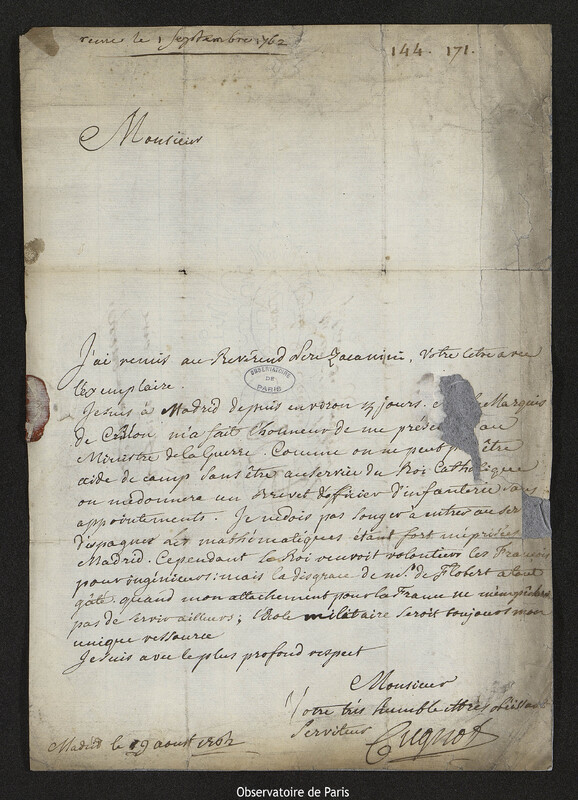 reçue le 1 Septembre 1762
144. 171.
Monsieur
J'ai remis au Révérend Pere Zacanini, Votre letre avec
l'éxemplaire.
OBSERVATOIRE DE PARIS
Je suis à Madrid depuis environ jours. Marquis
de Crillon m'a fait l'honneur de me présen au
Ministre de la Guerre. Comme on ne peut être
aide de camp sans être au service du Roi Catholique
on me donnera un Brevet d'officier d'infanterie sans
appointements. Je ne dois pas songer à entrer au ser
d'Espagne les mathématiques étant fort méprisées
Madrid. Cependant le Roi reuvoit volontiers les François
pour ingénieurs: mais la disgrace de Mr. de Flobert a tout
gâté. quand mon attachement pour la France ne
pas de servir ailleurs; l'École militaire seroit toujours mon
unique ressource
Je suis avec le plus profond respect
Monsieur
Votre très humble et très obéissant
Serviteur Cugnot
Madrid le 19 aoust 1762
Observatoire de Paris